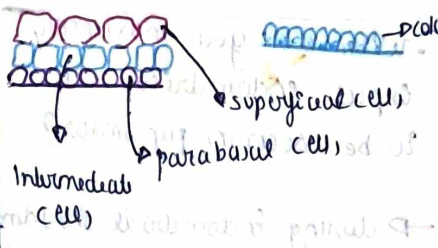 superficial cell,
parabasal cell,
Intermediate
cell,